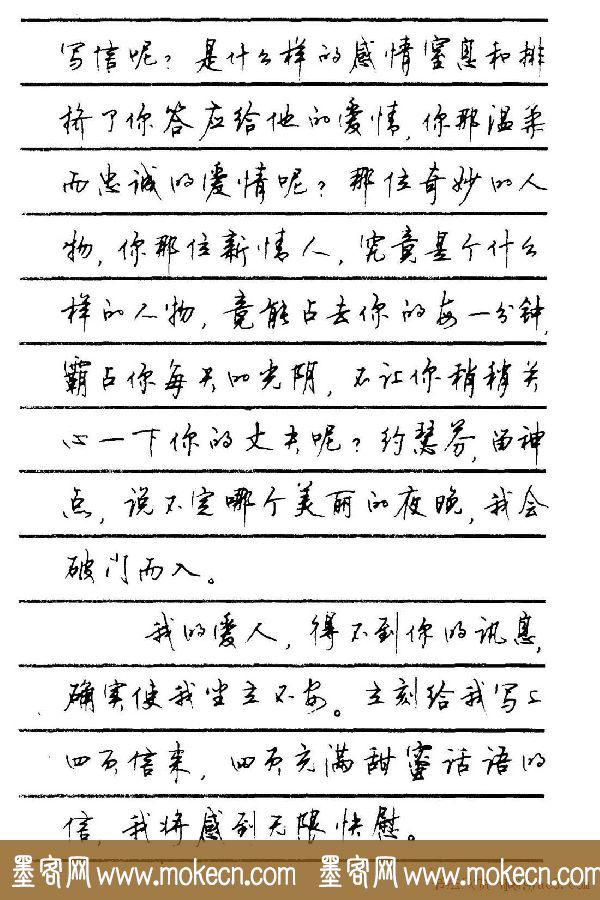 写信呢？是什么样的感情窒息和排
挤了你答应给他的爱情，你那温柔
而忠诚的爱情呢？那位奇妙的人
物，你那位新情人，究竟是个什么
样的人物，竟能占去你的每一分钟，
霸占你每天的光阴，不让你稍稍关
心一下你的丈夫呢？约瑟芬，留神
点，说不定哪个美丽的夜晚，我会
破门而入。
我的爱人，得不到你的讯息，
确实使我坐立不安。立刻给我写上
四页信来，四页充满甜蜜话语的
信，我将感到无限快慰。
墨客网 www.mokecn.com 墨客网 www.mokecn.com